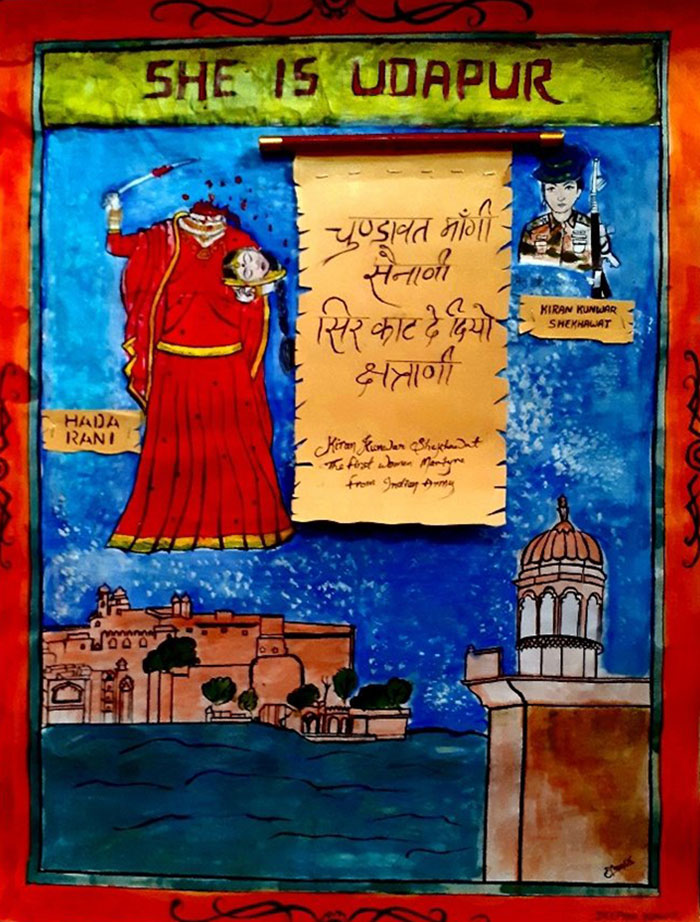 SHE IS UDAPUR
चुण्डावत माँगी
सैनाणी
सिर काट दे दियो
क्षत्राणी
Kiran Kunwar Shekhawat
The first women Martyre
from Indian Army
KIRAN KUNWAR
SHEKHAWAT
HADA
RANI